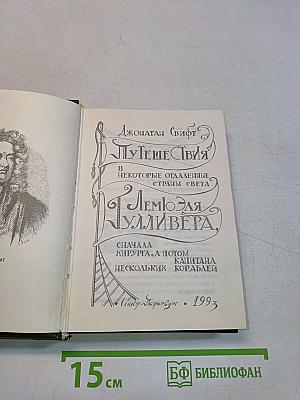 Джонатан Свифт
Путешествия
в
некоторые отдаленные
страны света
Лемюэля
Гулливера,
сначала
хирурга, а потом
капитана
нескольких кораблей
Санкт-Петербург • 1993
15 см
БФ БИБЛИОФАН